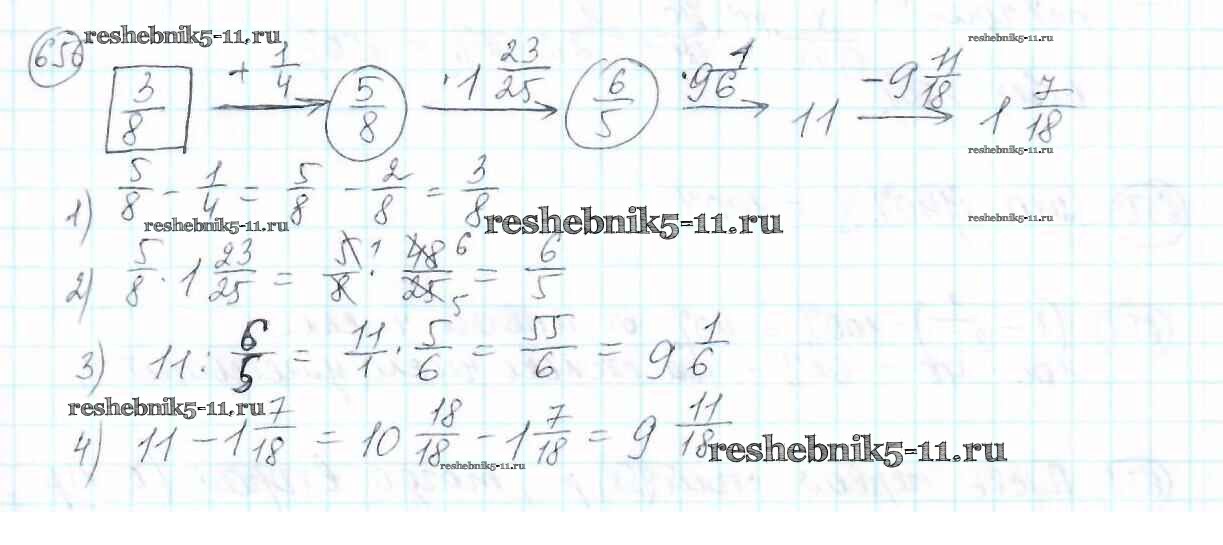 656 reshebnik5-11.ru reshebnik5-11.ru
3/8 + 1/4 → 5/8 · 1 23/25 → 6/5 · 9 1/6 → 11 - 9 11/18 → 1 7/18
reshebnik5-11.ru
1) 5/8 - 1/4 = 5/8 - 2/8 = 3/8
reshebnik5-11.ru reshebnik5-11.ru reshebnik5-11.ru
2) 5/8 · 1 23/25 = 5/8 1 · 48/25 6 5 = 6/5
3) 11 : 6/5 = 11/1 · 5/6 = 55/6 = 9 1/6
reshebnik5-11.ru
4) 11 - 1 7/18 = 10 18/18 - 1 7/18 = 9 11/18
reshebnik5-11.ru reshebnik5-11.ru